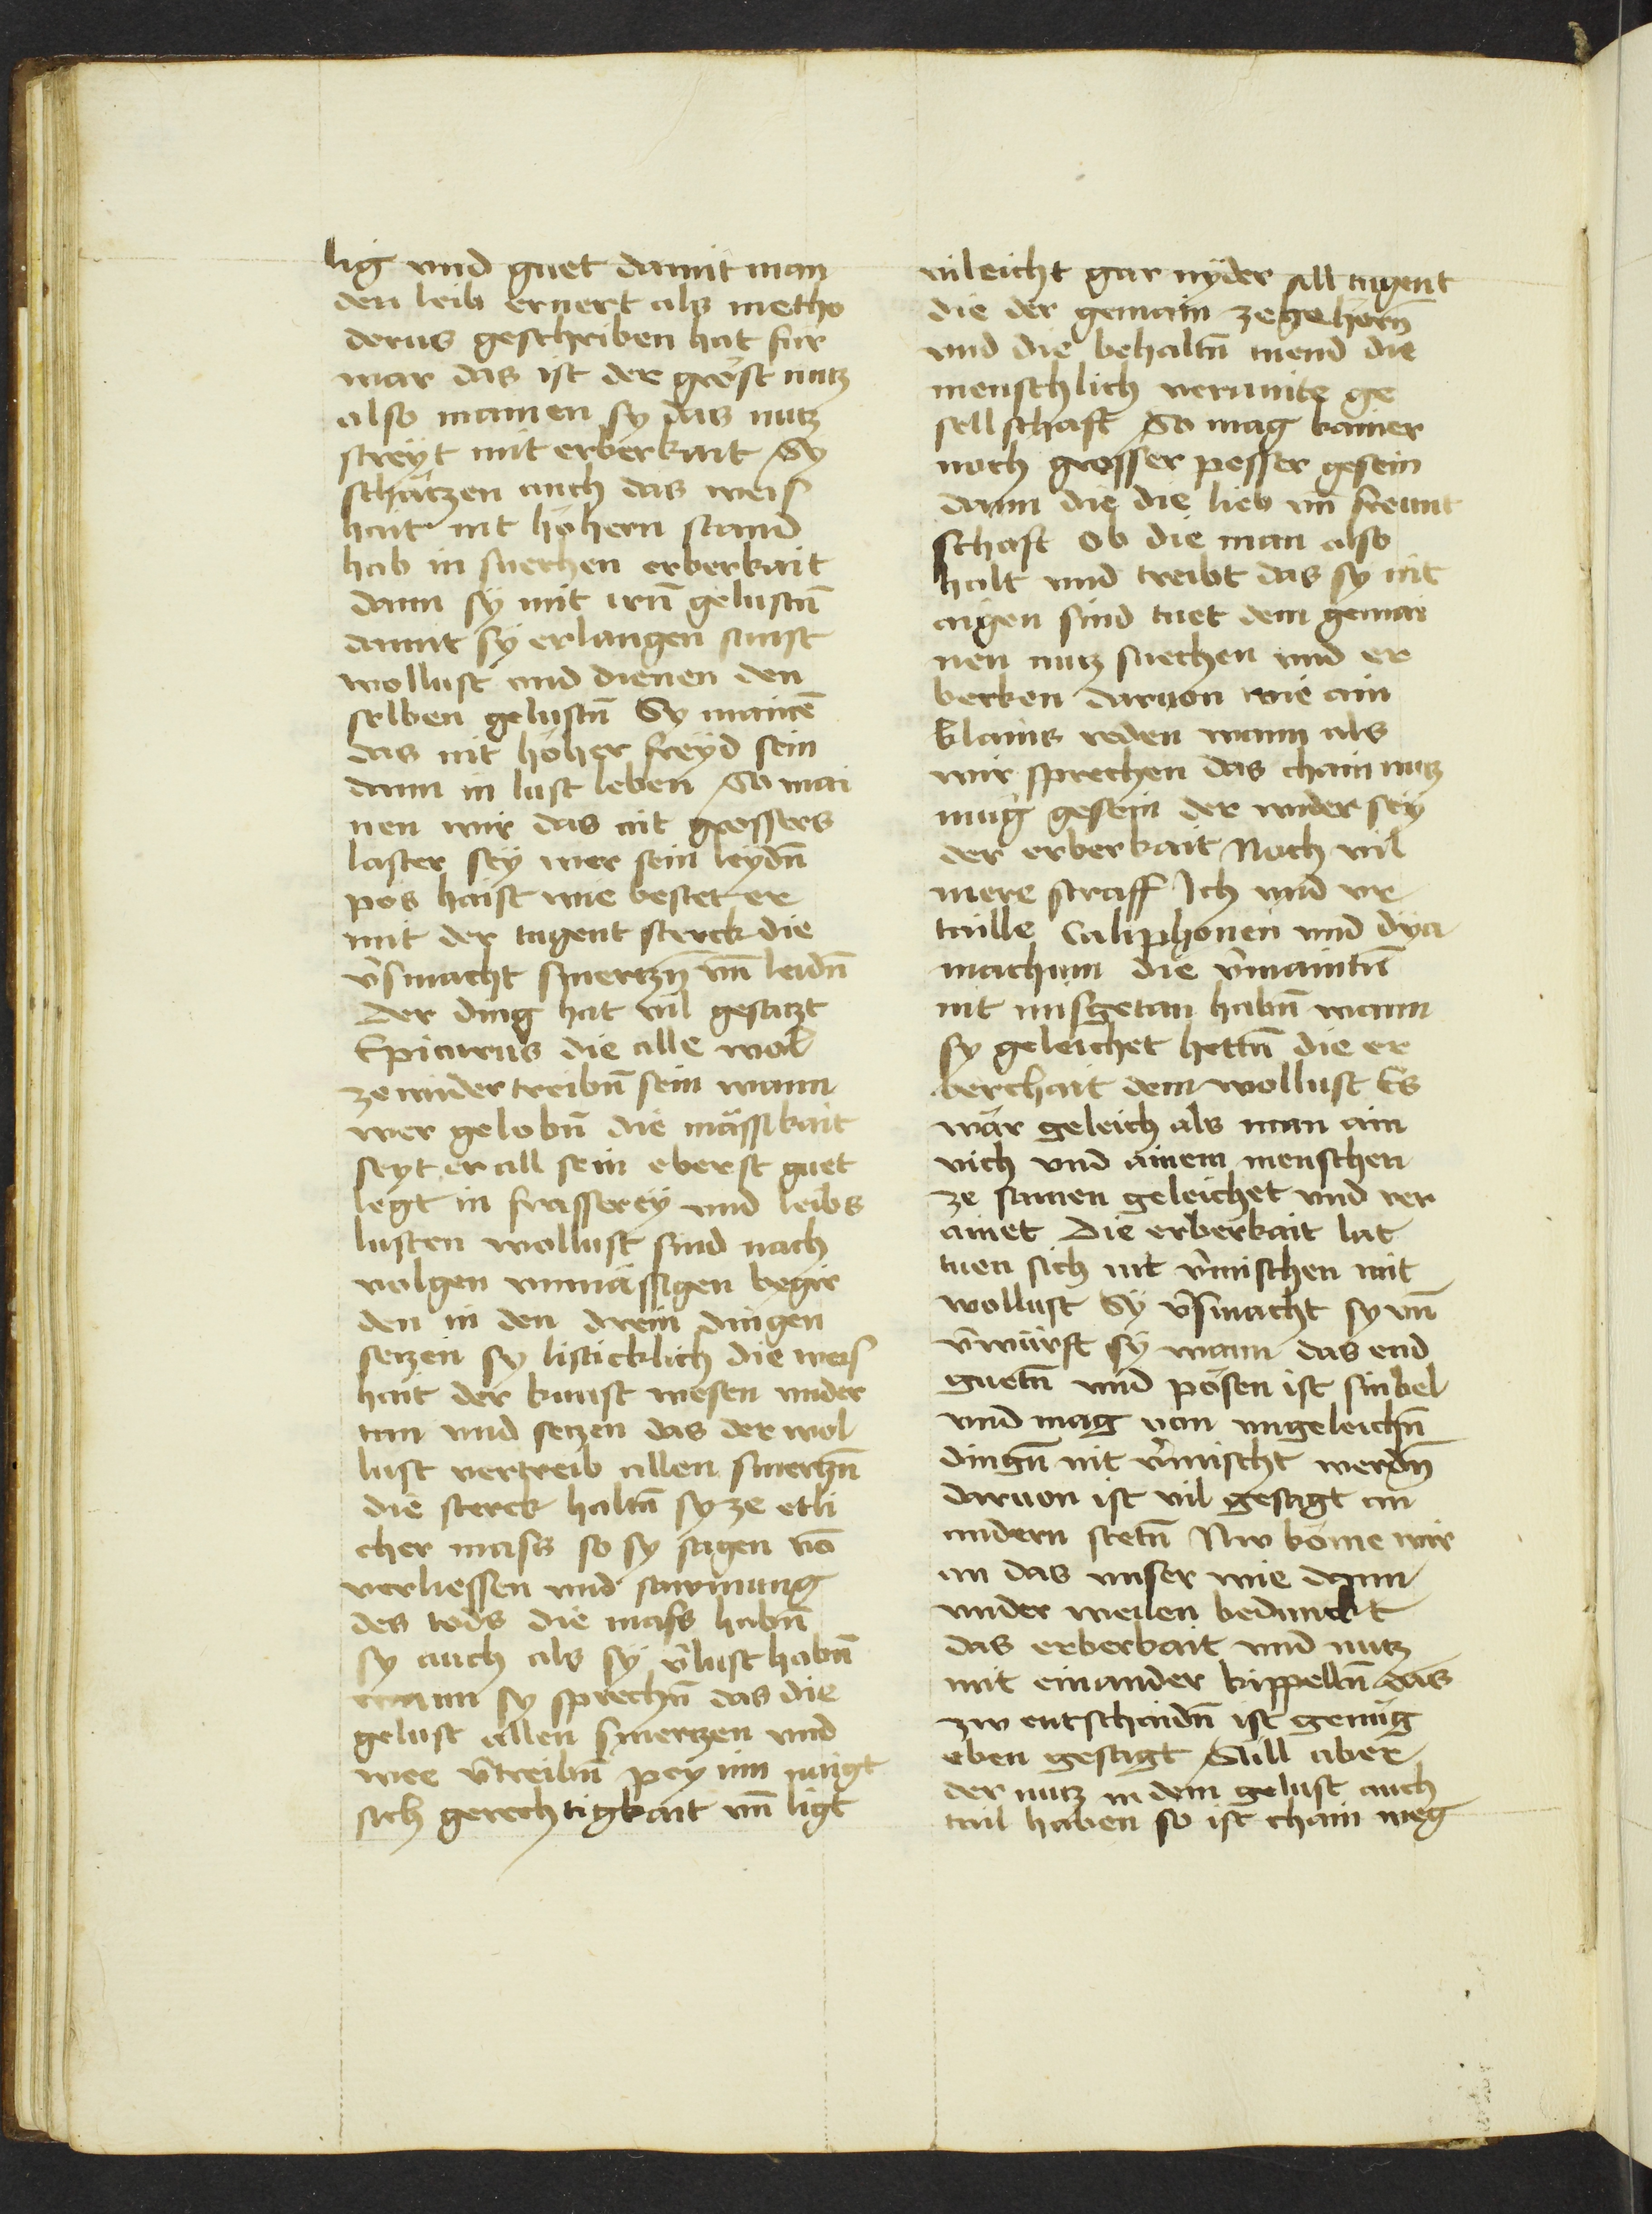 lig vnd guet damit man
den leib ernert als metho
derus geschriben hat für
war das ist der gröst nutz
also mainen sy das nutz
streyt mit erberkait Sy
schätzen auch das weis
hait nit höhern stand
hab in suechen erberkait
dann sÿ mit irn̄ gelustn̄
damit sÿ erlangen sunst
wollust vnd dienen den
selben gelustn̄ Sy mainē
das nit höher freÿd sein
dann in lust leben So mai
nen wir das nit grossers
laster seÿ wer sein leÿdn̄
pös haist wie bestet er
mit der tugent sterck die
v̄smacht smertzn̄ vn̄ leidn̄
Der ding hat vil gesatzt
Epicurus die alle wol
ze wider treibn̄ sein wann
wer gelobn̄ die mässikait
seyt er all sein eberst guet
legt in frasserey vnd leibs
lusten wollust sind nach
volgen vnmässigen begir
den in den drein dingen
setzen sy listicklich die weis
hait der kunst wesen vnder
tan vnd setzen das der wol
lust vertreib allen smertzn̄
die sterck haltn̄ sy ze etli
cher mass so sy sagen vō
verliessen vnd saumung
des tods die mass habn̄
sy auch als sÿ v̄lust habn̄
wann sy sprechn̄ das die
gelust allen smertzen vnd
wee v̄treibn̄ peÿ im naigt
sich gerechtigkait vn̄ ligt
vileicht gar nÿder All tugent
die der gemain ze gehörn̄
vnd die behaltn̄ tuend die
menschlich verainte ge
sellschaft So mag kainer
noch grosser posser gesein
dann die die lieb vn̄ freunt
schaft ob die man also
halt vnd treibt das sy nit
aigen sind tuet dem gemai
nen nutz suechen vnd er
berken daruon wie ain
klains reden wann als
wir sprechen das chain nutz
mug gesein der wider seÿ
der erberkait Noch vil
mere straff Ich vnd vr
taille Caliphonen vnd dÿa
machum die v̄maintn̄
nit misgetan habn̄ wann
sy geleichet hettn̄ die er
berchait dem wollust Es
wär geleich als man ain
vich vnd ainem menschen
ze samen geleichet vnd ver
ainet Die erberkait lat
tuen sich nit v̄mischen mit
wollust Sÿ v̄smacht sy vn̄
v̄würft sÿ wann das end
guetn̄ vnd pösen ist sinbel
vnd mag von vngeleichn̄
dingn̄ nit v̄mischt werdn̄
daruon ist vil gesagt an
andern stetn̄ Nw köme wir
an das vnser wie dann
vnder weilen bedunckt
das erberkait vnd nutz
mit einander kippelln̄ das
zw entschaidn̄ ist genüg
eben gesagt Süll aber
der nutz in dem gelust auch
tail haben so ist chain weg